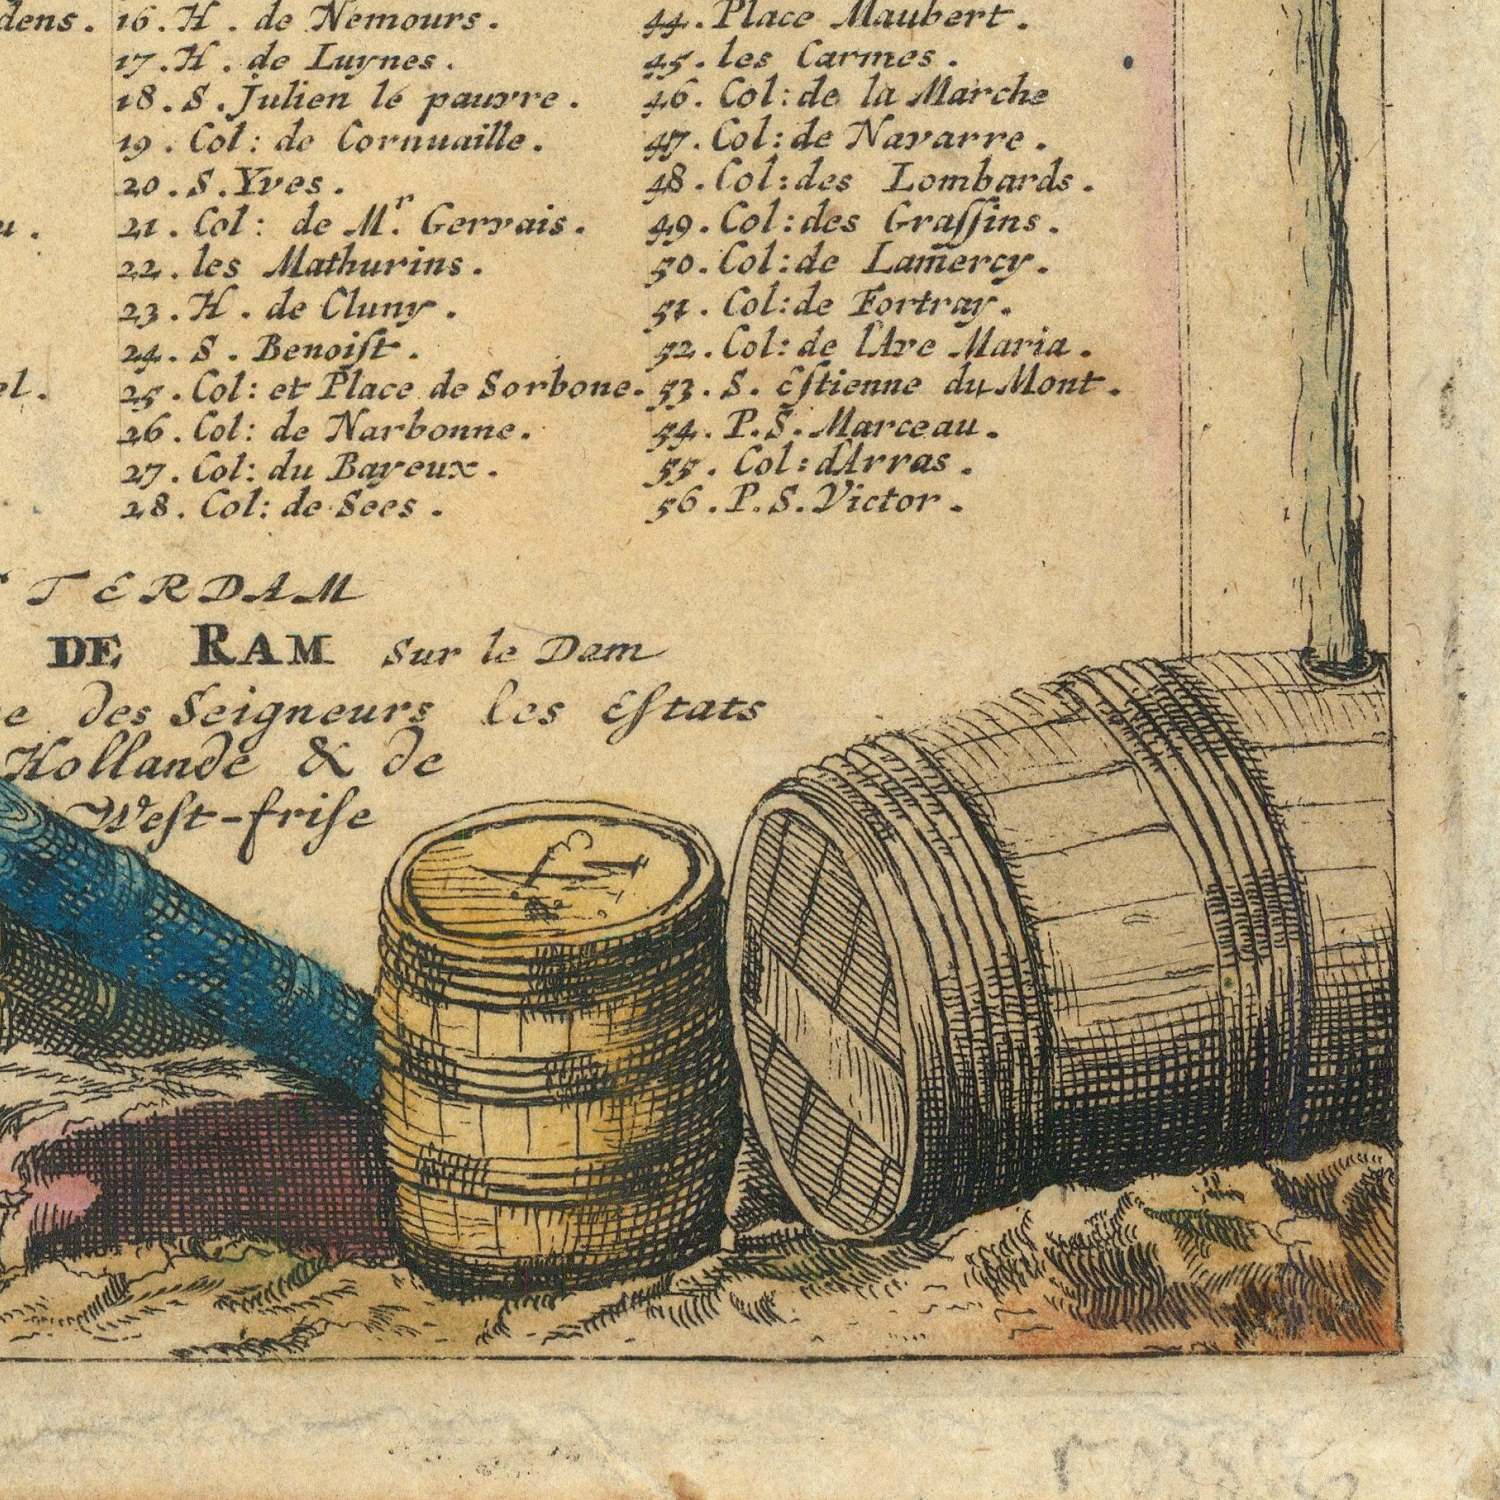 dens.
u.
el.
16. H. de Nemours.
17. H. de Luynes.
18. S. Julien le pauvre.
19. Col: de Cornuaille.
20. S. Yves.
21. Col: de M.r Gervais.
22. les Mathurins.
23. H. de Cluny.
24. S. Benoiſt.
25. Col: et Place de Sorbone.
26. Col: de Narbonne.
27. Col: du Bayeux.
28. Col: de Sees.
44. Place Maubert.
45. les Carmes.
46. Col: de la Marche
47. Col: de Navarre.
48. Col: des Lombards.
49. Col: des Graſſins.
50. Col: de Lam̄ercy.
51. Col: de Fortray.
52. Col: de l'Ave Maria.
53. S. Eſtienne du Mont.
54. P. S. Marceau.
55. Col: d'Arras.
56. P. S. Victor.
TERDAM
DE RAM Sur le Dam
e des Seigneurs les Eſtats
Hollande & de
Weſt-friſe